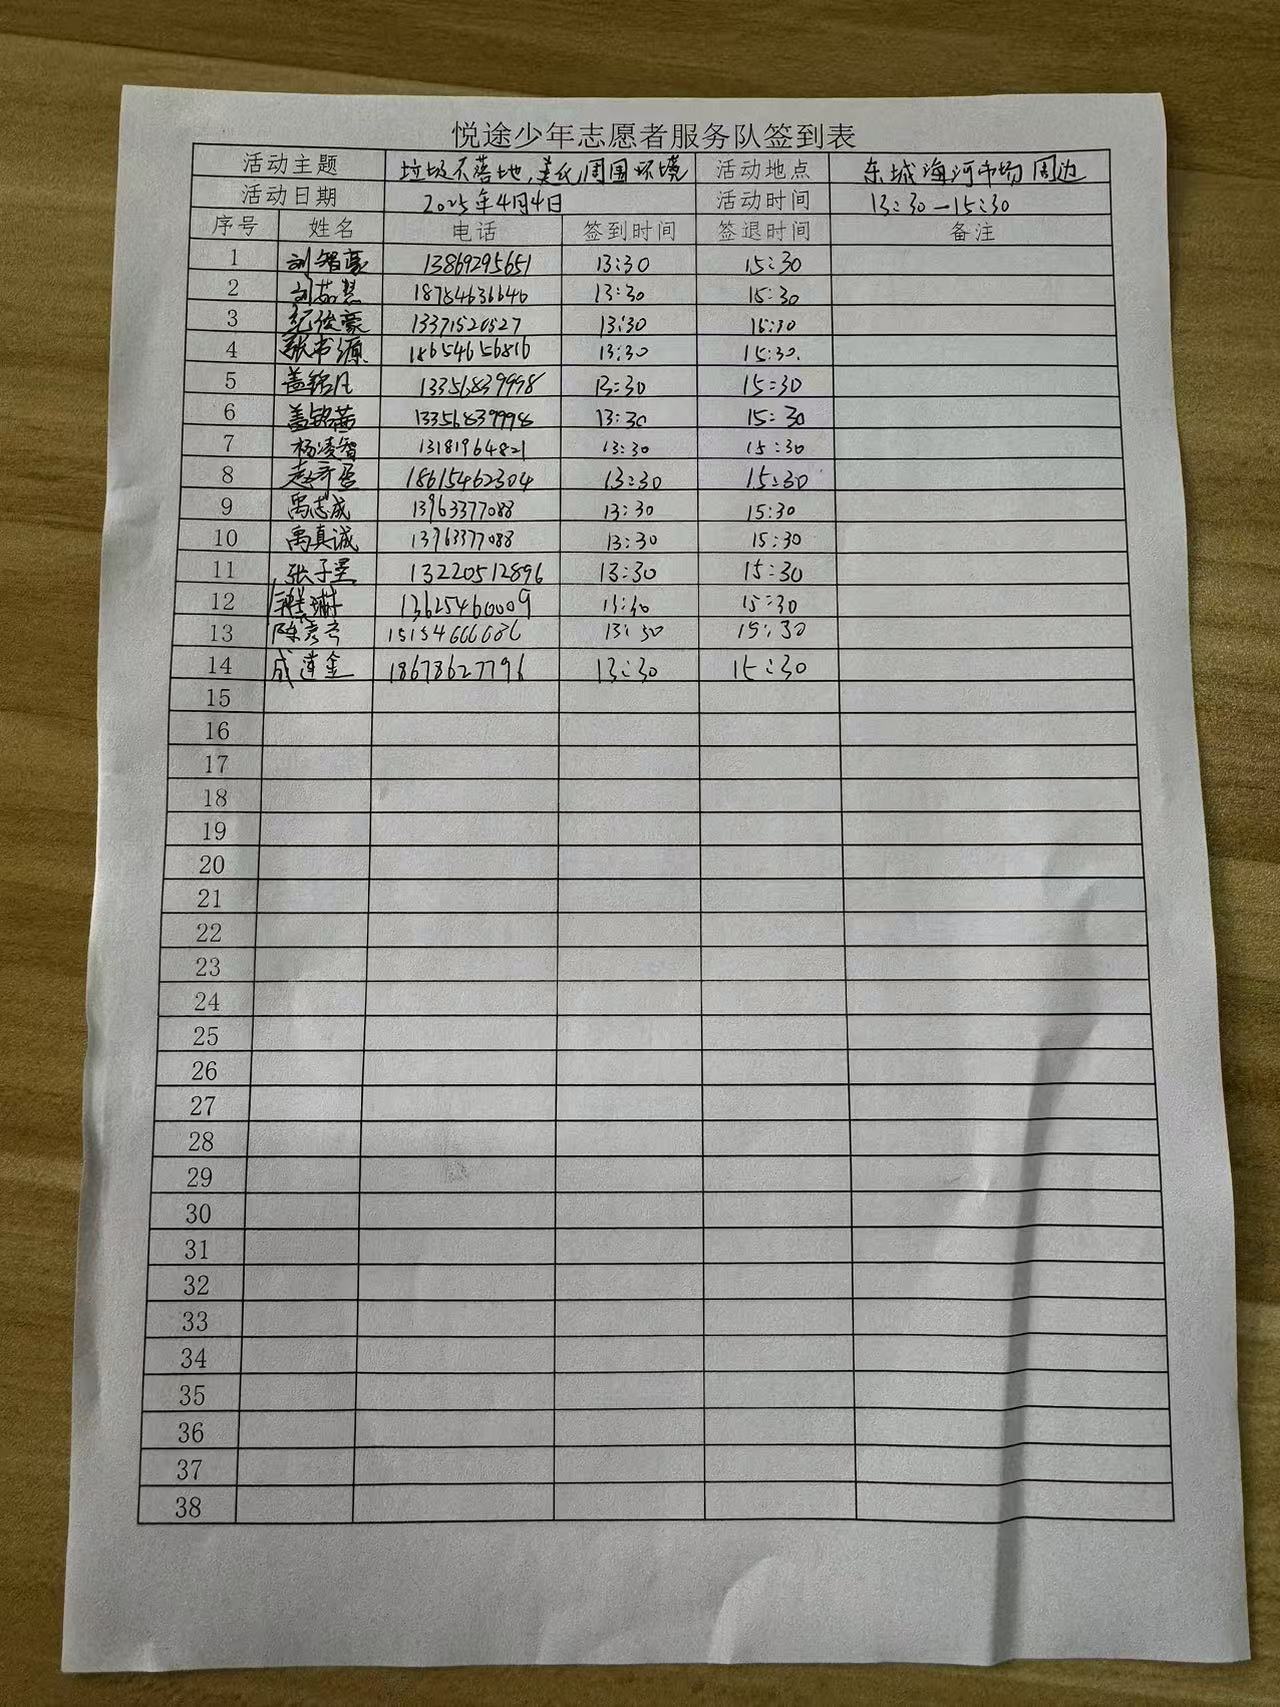 悦途少年志愿者服务队签到表
活动主题 垃圾不落地,美化周围环境 活动地点 东城海河市场周边
活动日期 2025年4月4日 活动时间 13:30—15:30
序号 姓名 电话 签到时间 签退时间 备注
1 刘智豪 13869295651 13:30 15:30
2 刘茹慧 18784636640 13:30 15:30
3 纪俊豪 13371520527 13:30 15:30
4 张书源 18654656816 13:30 15:30.
5 盖铭凡 13356839998 13:30 15:30
6 盖铭茜 13356839998 13:30 15:30
7 杨凌智 13181964821 13:30 15:30
8 18615462304 13:30 15:30
9 禹志成 13963377088 13:30 15:30
10 禹真诚 13963377088 13:30 15:30
11 张子墨 13220512896 13:30 15:30
12 13625460009 13:30 15:30
13 15154666686 13:30 15:30
14 成莲金 18678627796 13:30 15:30
15
16
17
18
19
20
21
22
23
24
25
26
27
28
29
30
31
32
33
34
35
36
37
38